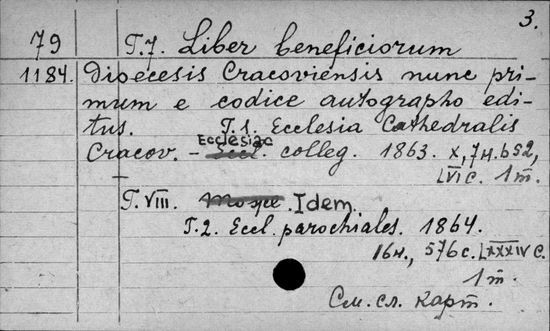 3.
79 T.7. Liber beneficiorum
1184. Dioecesis Cracoviensis nunc pri-
mum e codice autographo edi-
tus. T.1. Ecclesia Cathedralis
Cracov. - Ecclesiae colleg. 1863. X, 7н. 652,
LVI с. 1 т.
T.VIII. Idem.
T.2. Eccl. parochiales. 1864.
16н., 576с. LXXXIV с.
1 т.
См. сл. карт.